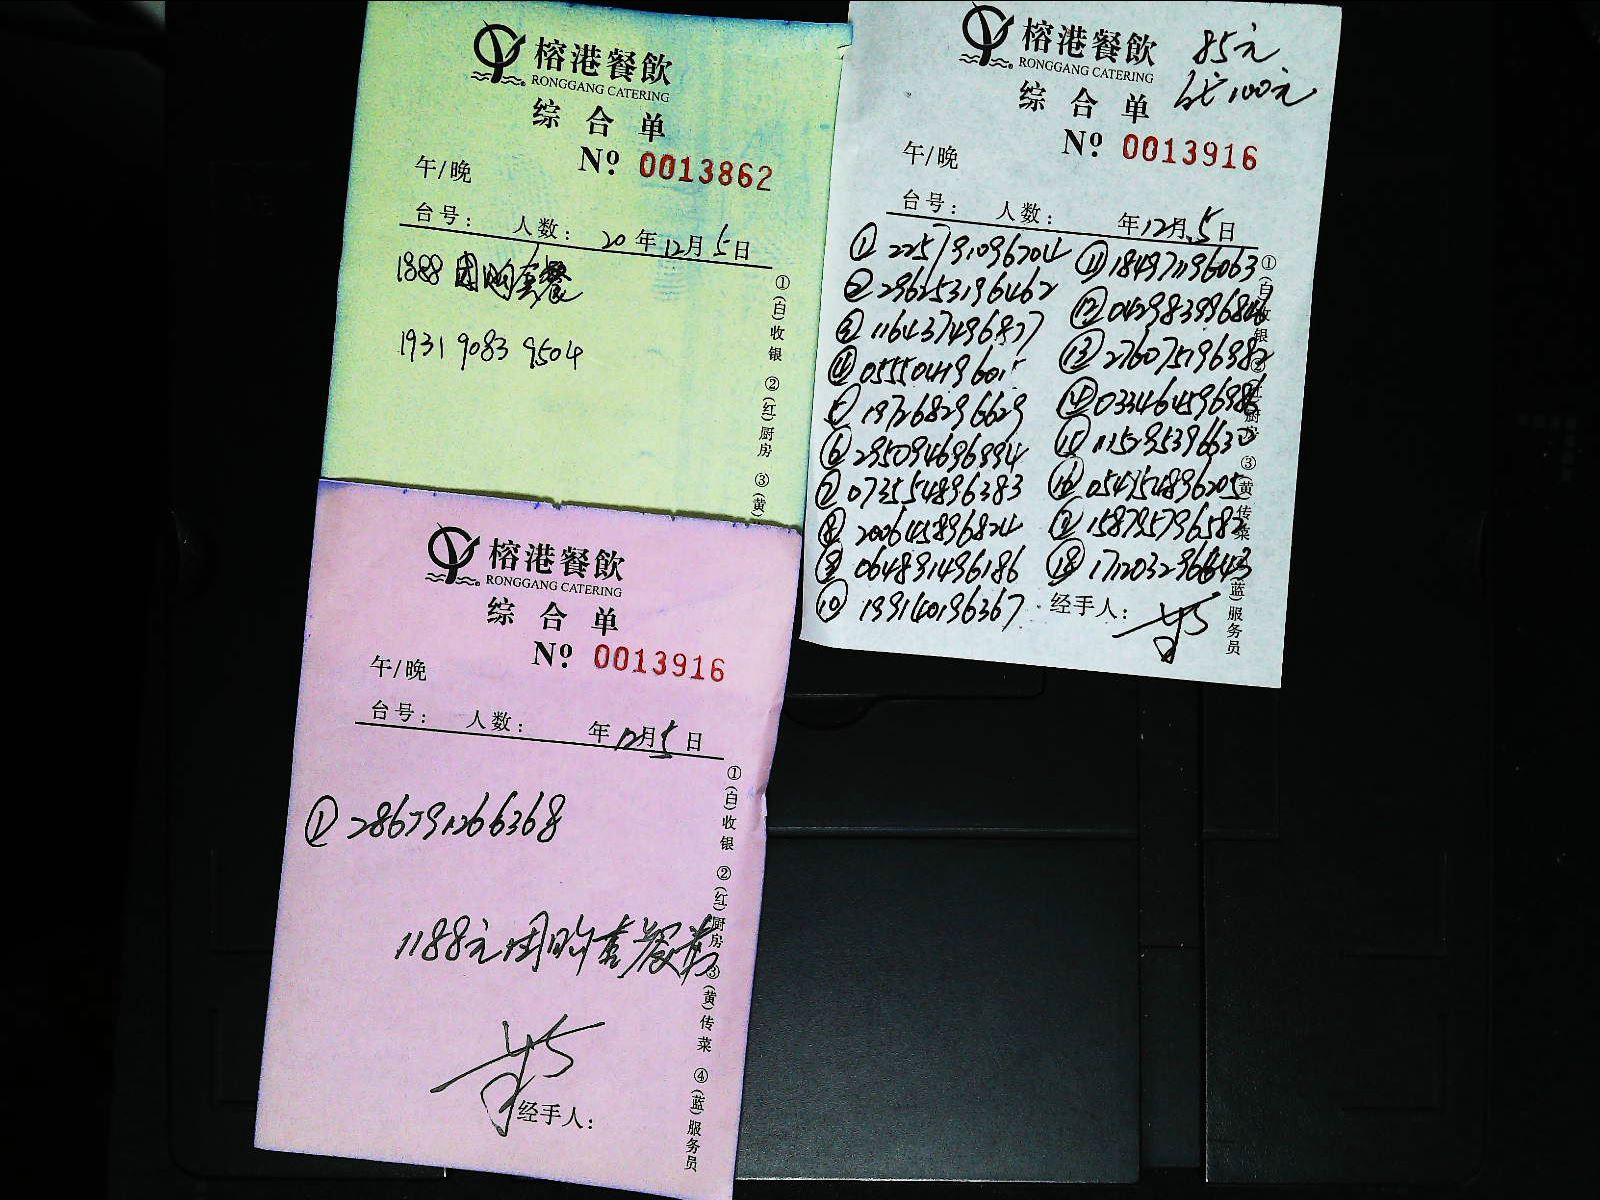 榕港餐飲
RONGGANG CATERING
综合单
№ 0013862
午/晚
台号： 人数： 20年12月5日
1888 团购套餐
1931 9083 9504
①(白)收银 ②(红)厨房 ③(黄)
榕港餐飲
RONGGANG CATERING
85元
代100元
综合单
№ 0013916
午/晚
台号： 人数： 年12月5日
① 225791096704
② 296253196462
③ 116437496877
④ 05550419601
⑤ 197268296629
⑥ 295094696994
⑦ 073554896383
⑧ 200645896824
⑨ 064891496186
⑩ 199140196367
⑪ 184971196063
⑫ 042983996846
⑬ 276075196982
⑭ 033464596986
⑮ 115295396630
⑯ 054754896205
⑰ 158795796582
⑱ 171203296643
经手人：
①(白)收银 ②(红)厨房 ③(黄)传菜 ④(蓝)服务员
榕港餐飲
RONGGANG CATERING
综合单
№ 0013916
午/晚
台号： 人数： 年12月5日
① 286791266368
1188元团购套餐券
经手人：
①(白)收银 ②(红)厨房 ③(黄)传菜 ④(蓝)服务员